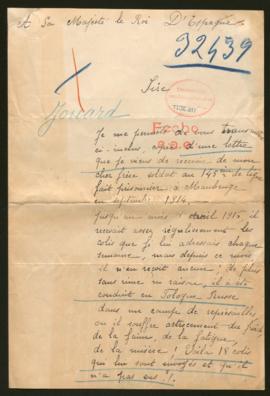 A Sa Majesté le Roi D'Espagne
32439
Sire
Joncard
Je me permets de vous
ci-inclus, copie d'une lettre
que je viens de recevoir de mon
cher frère soldat au 145ème de ligne
fait prisonnier à Maubeuge
en septembre 1914.
jusqu'au mois d'avril 1915 il
recevait assez régulièrement les
colis que je lui adressais chaque
semaine, mais depuis ce mois
il n'en reçoit aucun; de plus
sans rime ni raison, il a été
conduit en Pologne Russe
dans un camp de représailles
où il souffre atrocement du froid
de la faim, de la fatigue,
de la misère! Voilà 18 colis
qui lui sont envoyés et qu'il
n'a pas eus!!